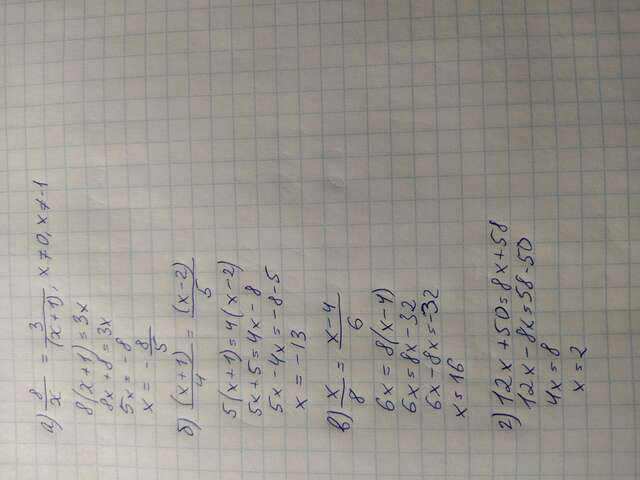 а) 8/x = 3/(x+1), x≠0, x≠-1
8(x+1)=3x
8x+8=3x
5x=-8
x=-8/5
б) (x+1)/4 = (x-2)/5
5(x+1)=4(x-2)
5x+5=4x-8
5x-4x=-8-5
x=-13
в) x/8 = x-4/6
6x=8(x-4)
6x=8x-32
6x-8x=-32
x=16
г) 12x+50=8x+58
12x-8x=58-50
4x=8
x=2